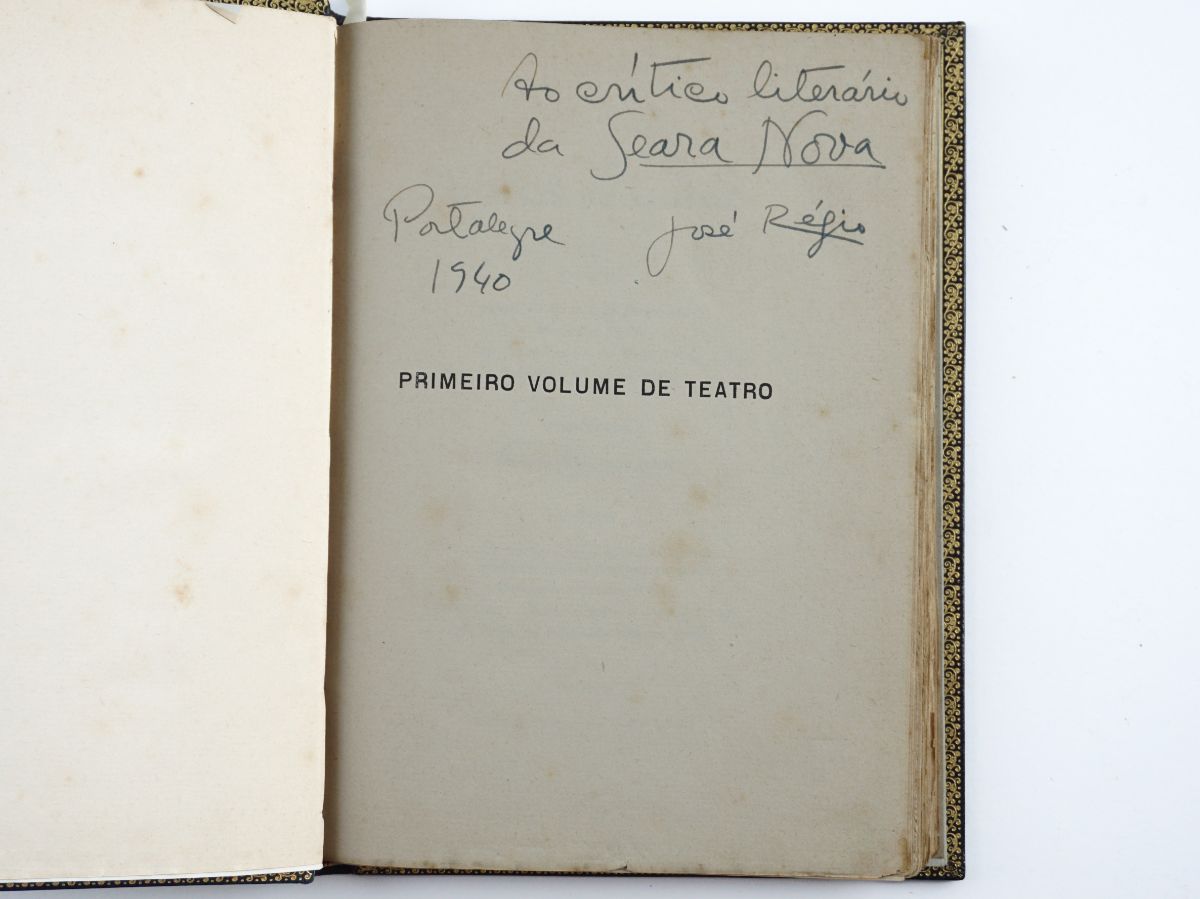 Ao crítico literário
da Seara Nova
Portalegre José Régio
1940
PRIMEIRO VOLUME DE TEATRO